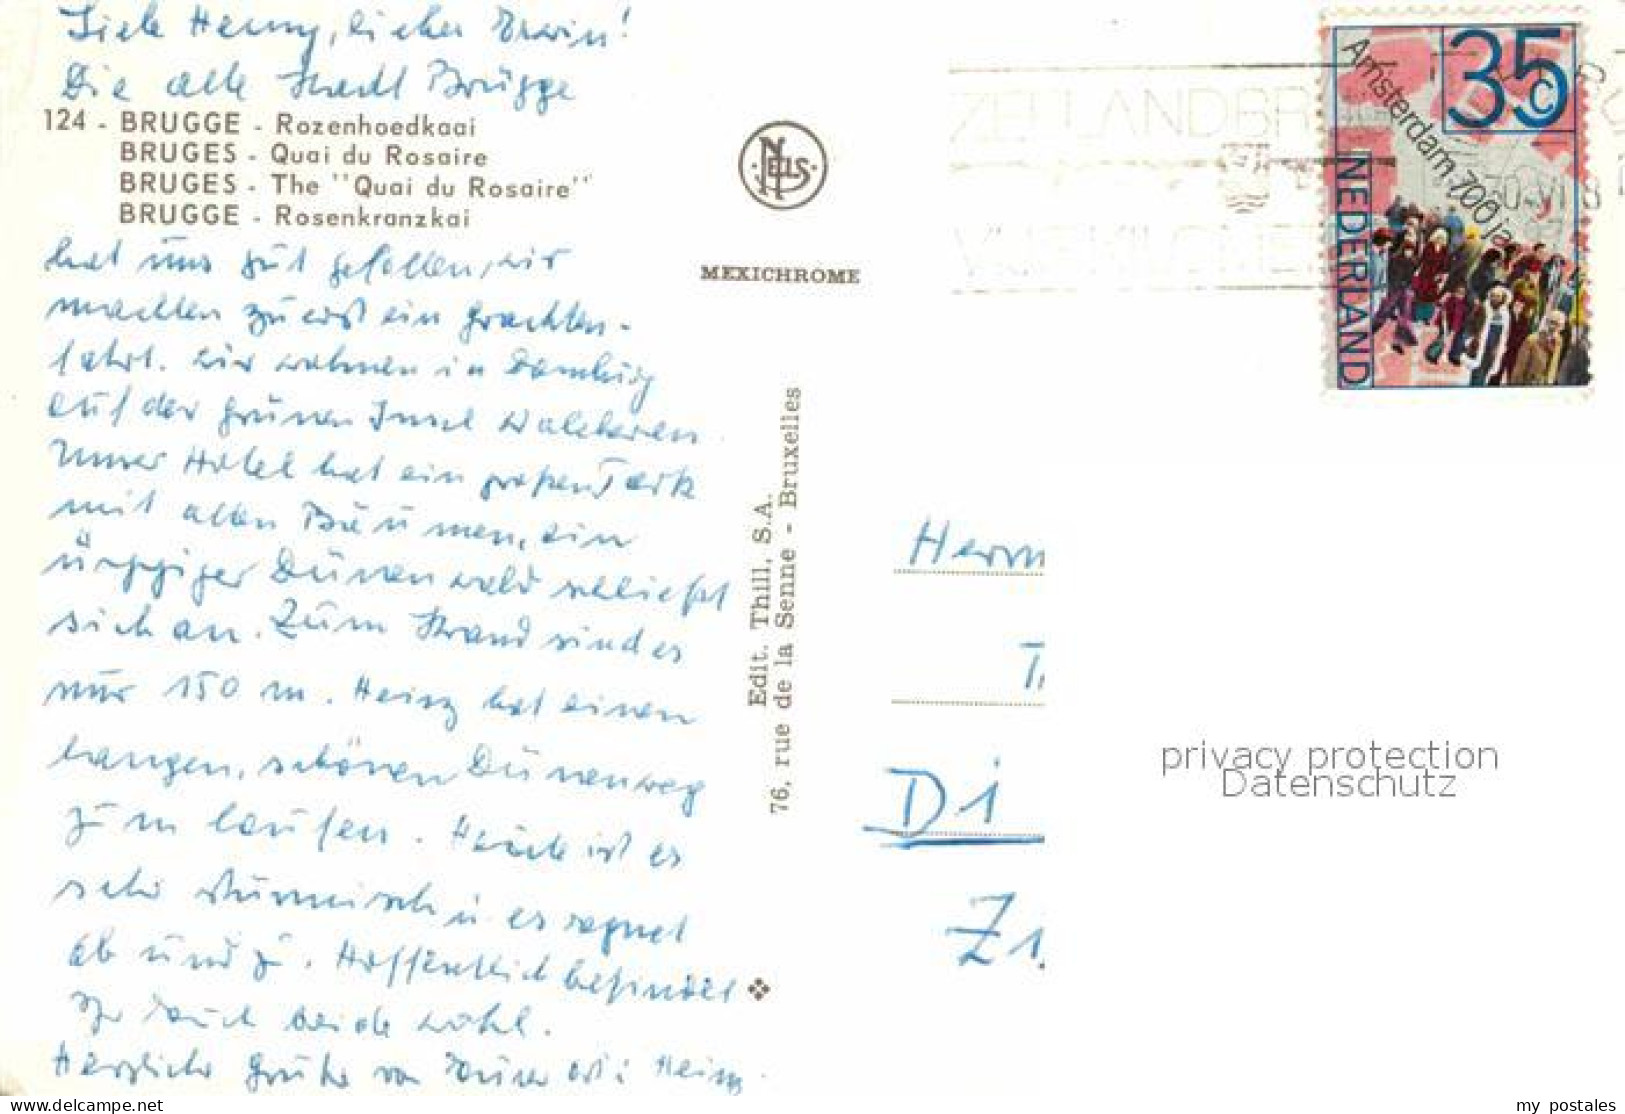 Liebe Henny, lieber Erwin!
Die alte Stadt Brügge
124 - BRUGGE - Rozenhoedkaai
BRUGES - Quai du Rosaire
BRUGES - The "Quai du Rosaire"
BRUGGE - Rosenkranzkai
hat uns gut gefallen, wir
machten zuerst ein Grachten-
fahrt. Wir wohnen in Domburg
auf der grünen Insel Walcheren.
Unser Hotel hat ein großen Park
mit alten Bäumen, ein
üppiger Dünenwald schließt
sich an. Zum Strand sind es
nur 150 m. Heinz hat einen
langen, schönen Dünenweg
zum laufen. Heute ist es
sehr stürmisch u. es regnet
ab und zu. Hoffentlich befindet
Ihr Euch beide wohl.
Herzliche Grüße von Eurer u. Heinz
NELS
MEXICHROME
Edit. Thill, S.A.
76, rue de la Senne - Bruxelles
ZEELANDBR
35 c
Amsterdam 700 ja
NEDERLAND
30.VI.8
Herrn
Di
privacy protection
Datenschutz
delcampe.net
my_postales